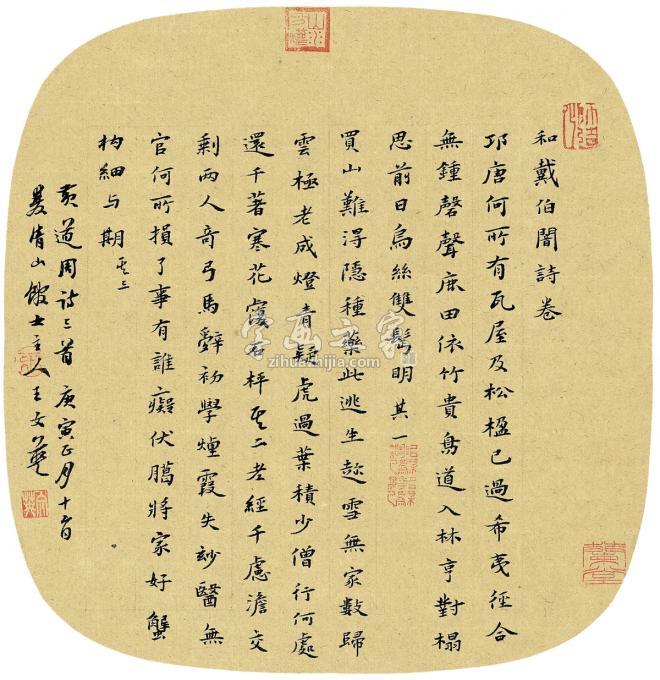 和戴伯闇詩卷
邛唐何所有瓦屋及松楹已過希夷徑合
無鍾磬聲鹿田依竹貴鳥道入林亨對榻
思前日烏絲雙鬂明其一
買山難淂隱種藥此逃生趂雪無家數歸
雲極老成燈青疑虎過葉積少僧行何處
還千著寒花覆石枰其二老經千慮澹交
剩兩人奇弓馬辭初學煙霞失玅醫無
官何所損了事有誰癡伏臈將家好蟹
杓細与期其三
黄道周詩三首庚寅正月十
山館主人王文英
字画之家
zihuazhijia.com